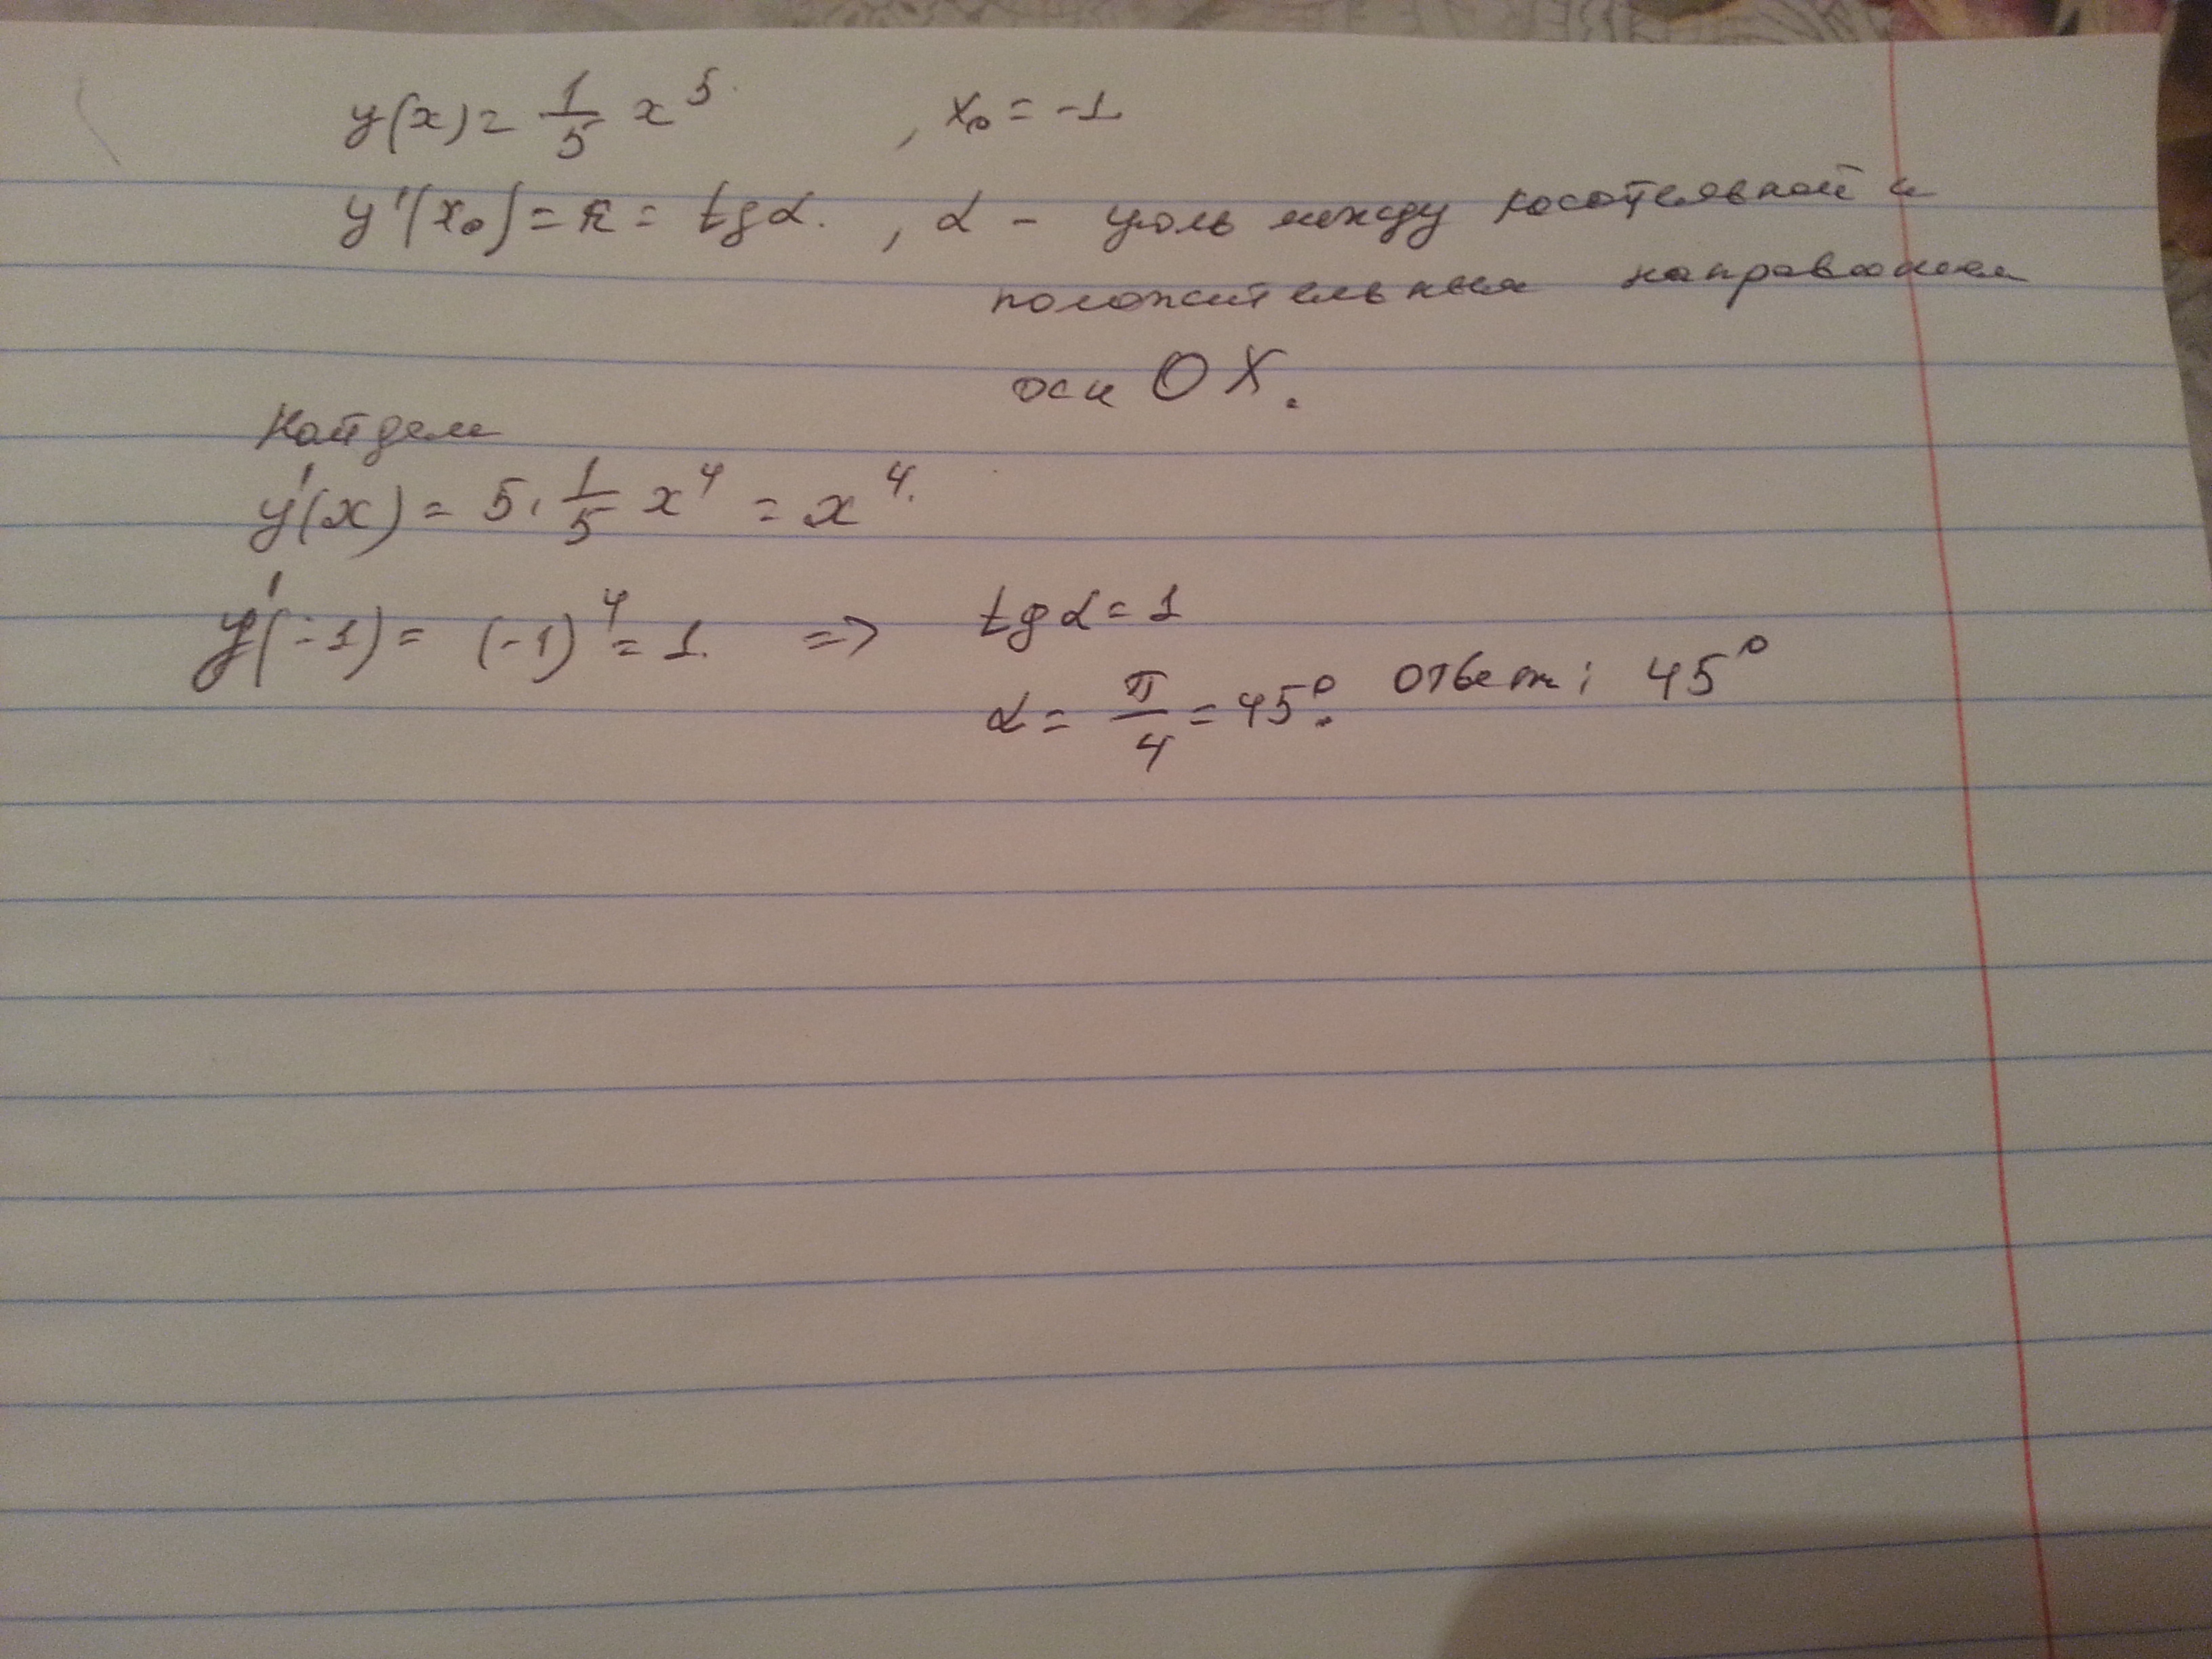 y(x) = 1/5 x^5. , x₀ = -1
y'(x₀) = k = tg α. , α - угол между касательной и
положительным направлением
оси OX.
Найдем
y'(x) = 5 · 1/5 x^4 = x^4.
y'(-1) = (-1)^4 = 1. => tg α = 1
α = π/4 = 45°. Ответ: 45°